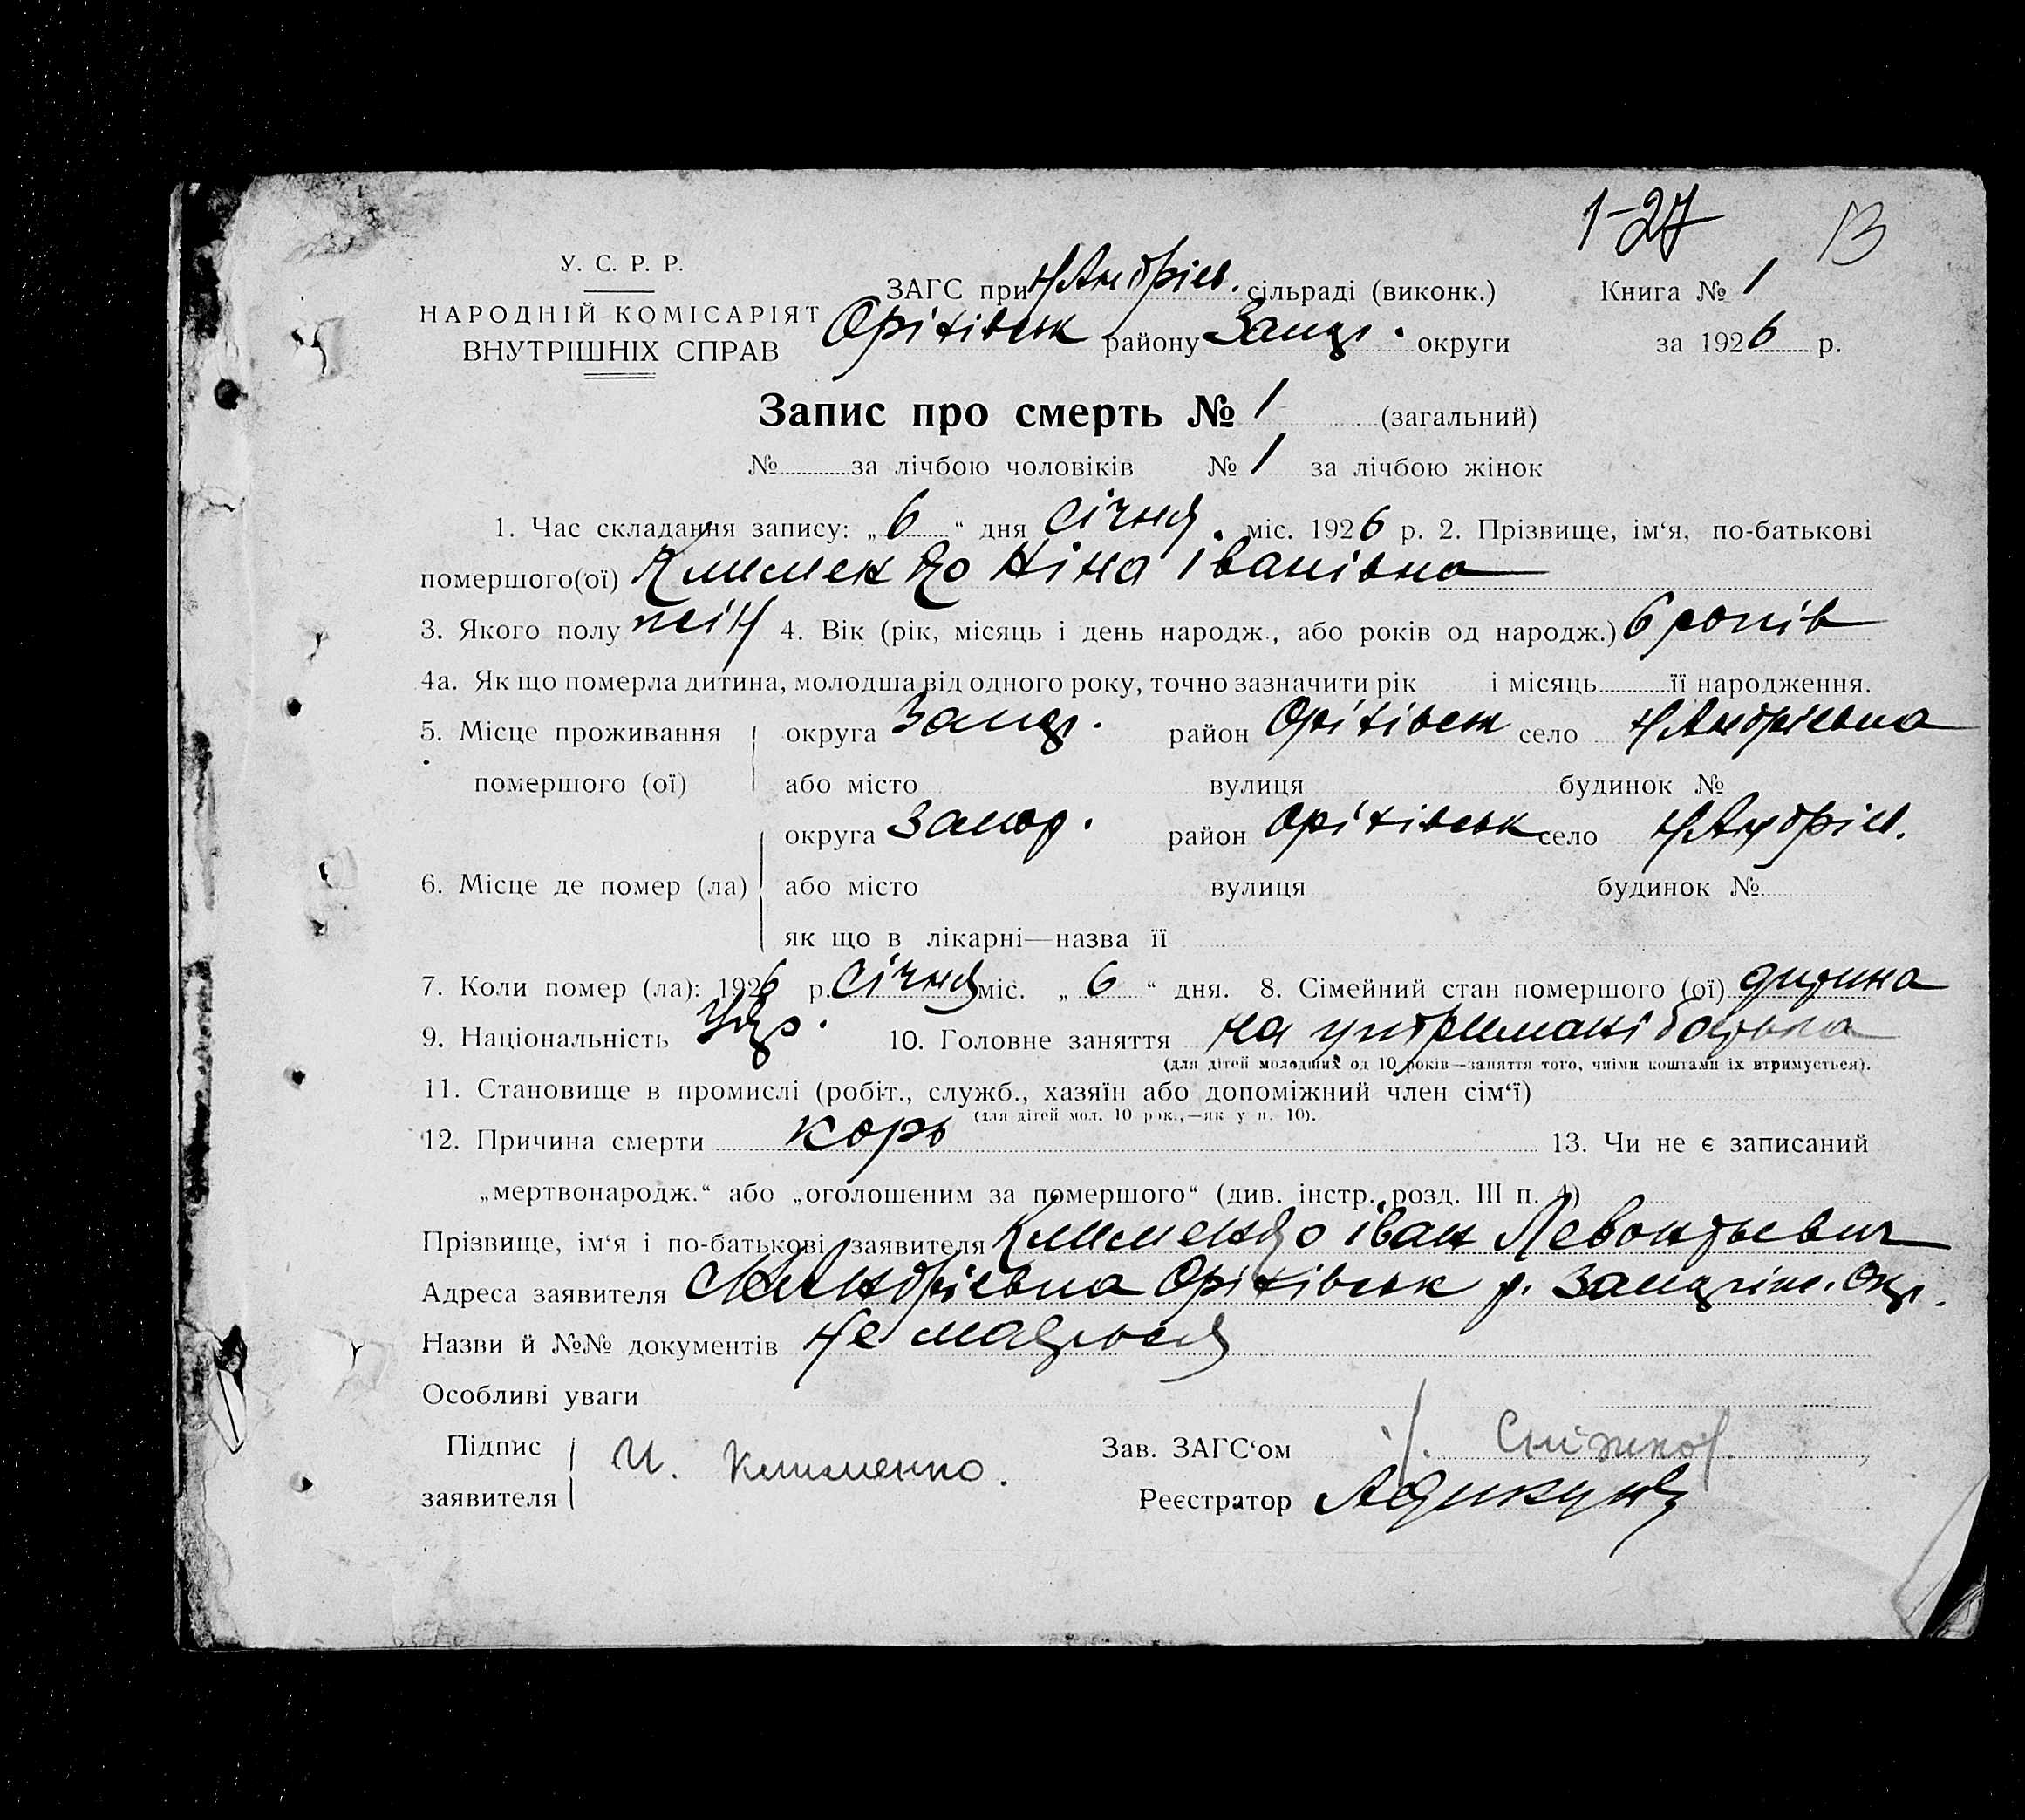 1-27 13
У. С. Р. Р.
НАРОДНІЙ КОМІСАРІЯТ
ВНУТРІШНІХ СПРАВ
ЗАГС при Н Андріев. сільраді (виконк.) Книга № 1
Оріхівськ району Запор. округи за 1926 р.
Запис про смерть № 1 (загальний)
№ за лічбою чоловіків № 1 за лічбою жінок
1. Час складання запису: „6“ дня січня. міс. 1926 р. 2. Прізвище, ім‘я, по-батькові
помершого(ої) Клименко Ніна Іванівна
3. Якого полу жін 4. Вік (рік, місяць і день народж., або років од народж.) 6 років
4а. Як що померла дитина, молодша від одного року, точно зазначити рік і місяць її народження.
5. Місце проживання округа Запор. район Оріхівськ село Н Андріевка
помершого (ої) або місто вулиця будинок №
округа Запор. район Оріхівськ село Н Андрієв.
6. Місце де помер (ла) або місто вулиця будинок №
як що в лікарні—назва її
7. Коли помер (ла): 1926 р. січня міс. „6“ дня. 8. Сімейний стан помершого (ої) дитина
9. Національність Укр. 10. Головне заняття на утримані батька
(для дітей молодших од 10 років—заняття того, чиїми коштами їх втримується).
11. Становище в промислі (робіт., служб., хазяїн або допоміжний член сім‘ї)
(для дітей мол. 10 рок.,—як у п. 10).
12. Причина смерти корь 13. Чи не є записаний
„мертвонародж.“ або „оголошеним за помершого“ (див. інстр. розд. III п. 4)
Прізвище, ім‘я і по-батькові заявителя Клименко Іван Левонтьевич
Адреса заявителя Андріевка Оріхівськ р. Запоріж. Окр.
Назви й №№ документів Не мається
Особливі уваги
Підпис И. Клименко. Зав. ЗАГС‘ом
заявителя Реєстратор